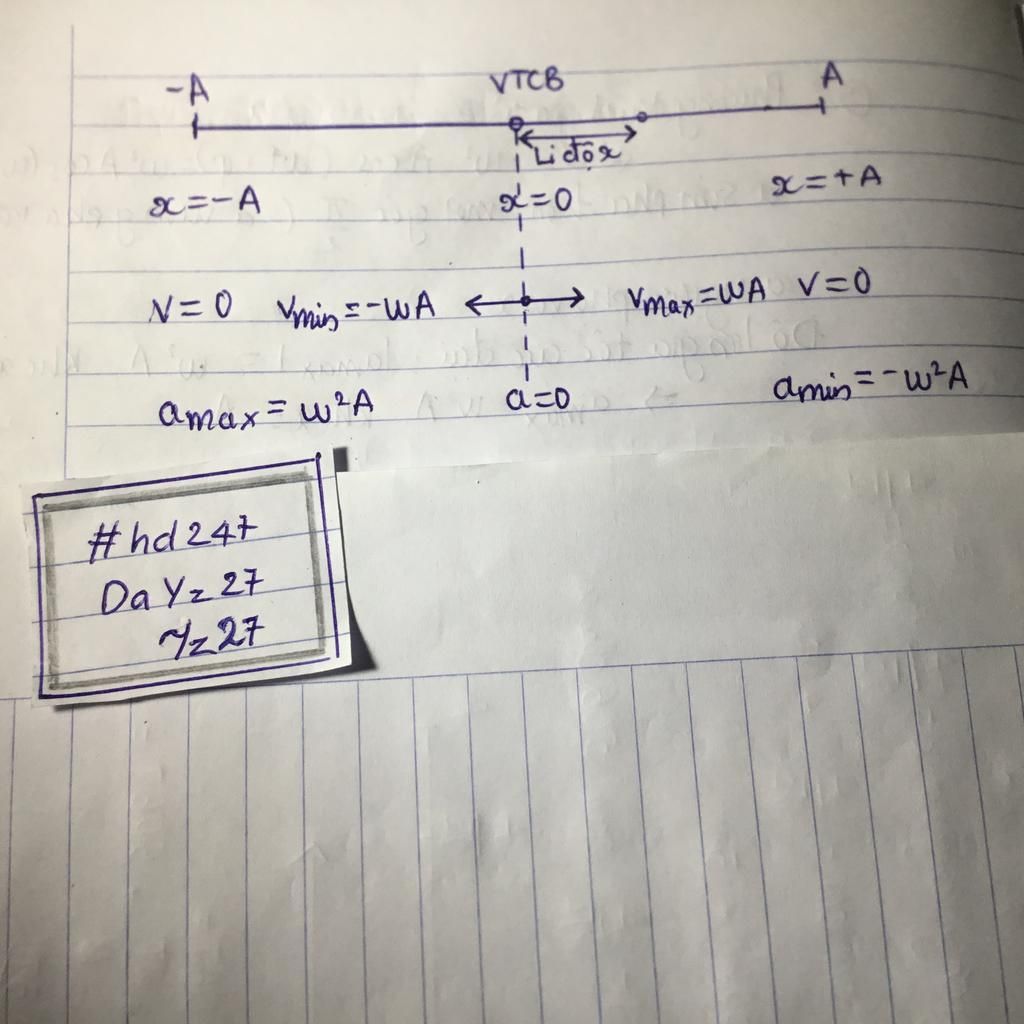 -A VTCB A
Li độ x
x=-A x=0 x=+A
v=0 vmin=-wA vmax=wA v=0
amax=w²A a=0 amin=-w²A
#hd247
DaYz27
Yz27